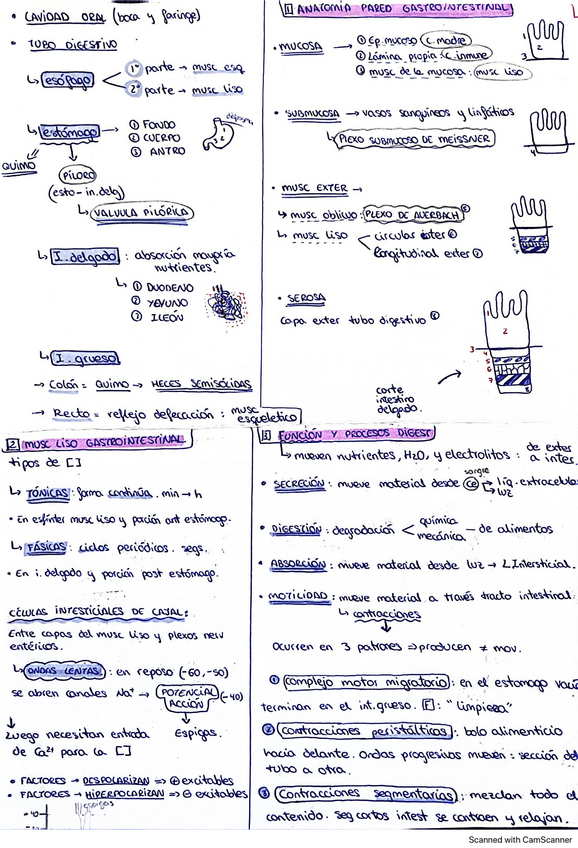 • CAVIDAD ORAL (boca y faringe)
• TUBO DIGESTIVO
↳ esófago < 1ª parte → musc esq
2ª parte → musc liso
↳ estómago → ① FONDO
② CUERPO
③ ANTRO
QUIMO
PÍLORO
(esto - in. delg)
↳ VALVULA PILÓRICA
↳ I. delgado : absorción mayoría
nutrientes.
↳ ① DUODENO
② YEYUNO
③ ILEÓN
↳ I. grueso
→ Colón = QUIMO → HECES SEMISÓLIDAS
→ Recto = reflejo defecación : musc
esquelético
1 ANATOMÍA PARED GASTROINTESTINAL
• MUCOSA → ① Ep. mucoso (c. madre)
② Lámina propia : c. inmune
③ musc de la mucosa : musc liso
1
2
3
• SUBMUCOSA → vasos sanguíneos y linfáticos
↳ PLEXO SUBMUCOSO DE MEISSNER
4
• MUSC EXTER →
↳ musc oblicuo : PLEXO DE AUERBACH ⑥
↳ musc liso < circular exter ⑤
longitudinal exter ⑦
5
6
7
• SEROSA
capa exter tubo digestivo ⑧
corte
intestino
delgado.
1
2
3
4
5
6
7
8
2 MUSC LISO GASTROINTESTINAL
tipos de []
↳ TÓNICAS : forma continúa. min → h
• En esfínter musc liso y porción ant estómago.
↳ FÁSICAS : ciclos periódicos. segs.
• En i. delgado y porción post estómago.
CÉLULAS INTESTICIALES DE CAJAL:
Entre capas del musc liso y plexos nerv
entéricos.
↳ ONDAS LENTAS : en reposo (-60, -50)
se abren canales Na⁺ → POTENCIAL
ACCIÓN (-40)
↓ Espigas.
Luego necesitan entrada
de Ca²⁺ para la []
• FACTORES → DESPOLARIZAN ⇒ ⊕ excitables
• FACTORES → HIPERPOLARIZAN ⇒ ⊖ excitables
-40
3 FUNCIÓN Y PROCESOS DIGEST
↳ mueven nutrientes, H₂O, y electrolitos : de exter
a inter.
• SECRECIÓN : mueve material desde sangre
líq. extracelular
luz
• DIGESTIÓN : degradación < química
mecánica - de alimentos
• ABSORCIÓN : mueve material desde luz → L Intersticial.
• MOTILIDAD : mueve material a través tracto intestinal.
↳ contracciones
ocurren en 3 patrones ⇒ producen ≠ mov.
① complejo motor migratorio : en el estomago vacío
terminan en el int. grueso. F : "limpieza"
② contracciones peristálticas : bolo alimenticio
hacia delante. Ondas progresivas mueven : sección de
tubo a otra.
③ Contracciones segmentarias : mezclan todo el
contenido. Seg cortos intest se contraen y relajan.
Scanned with CamScanner